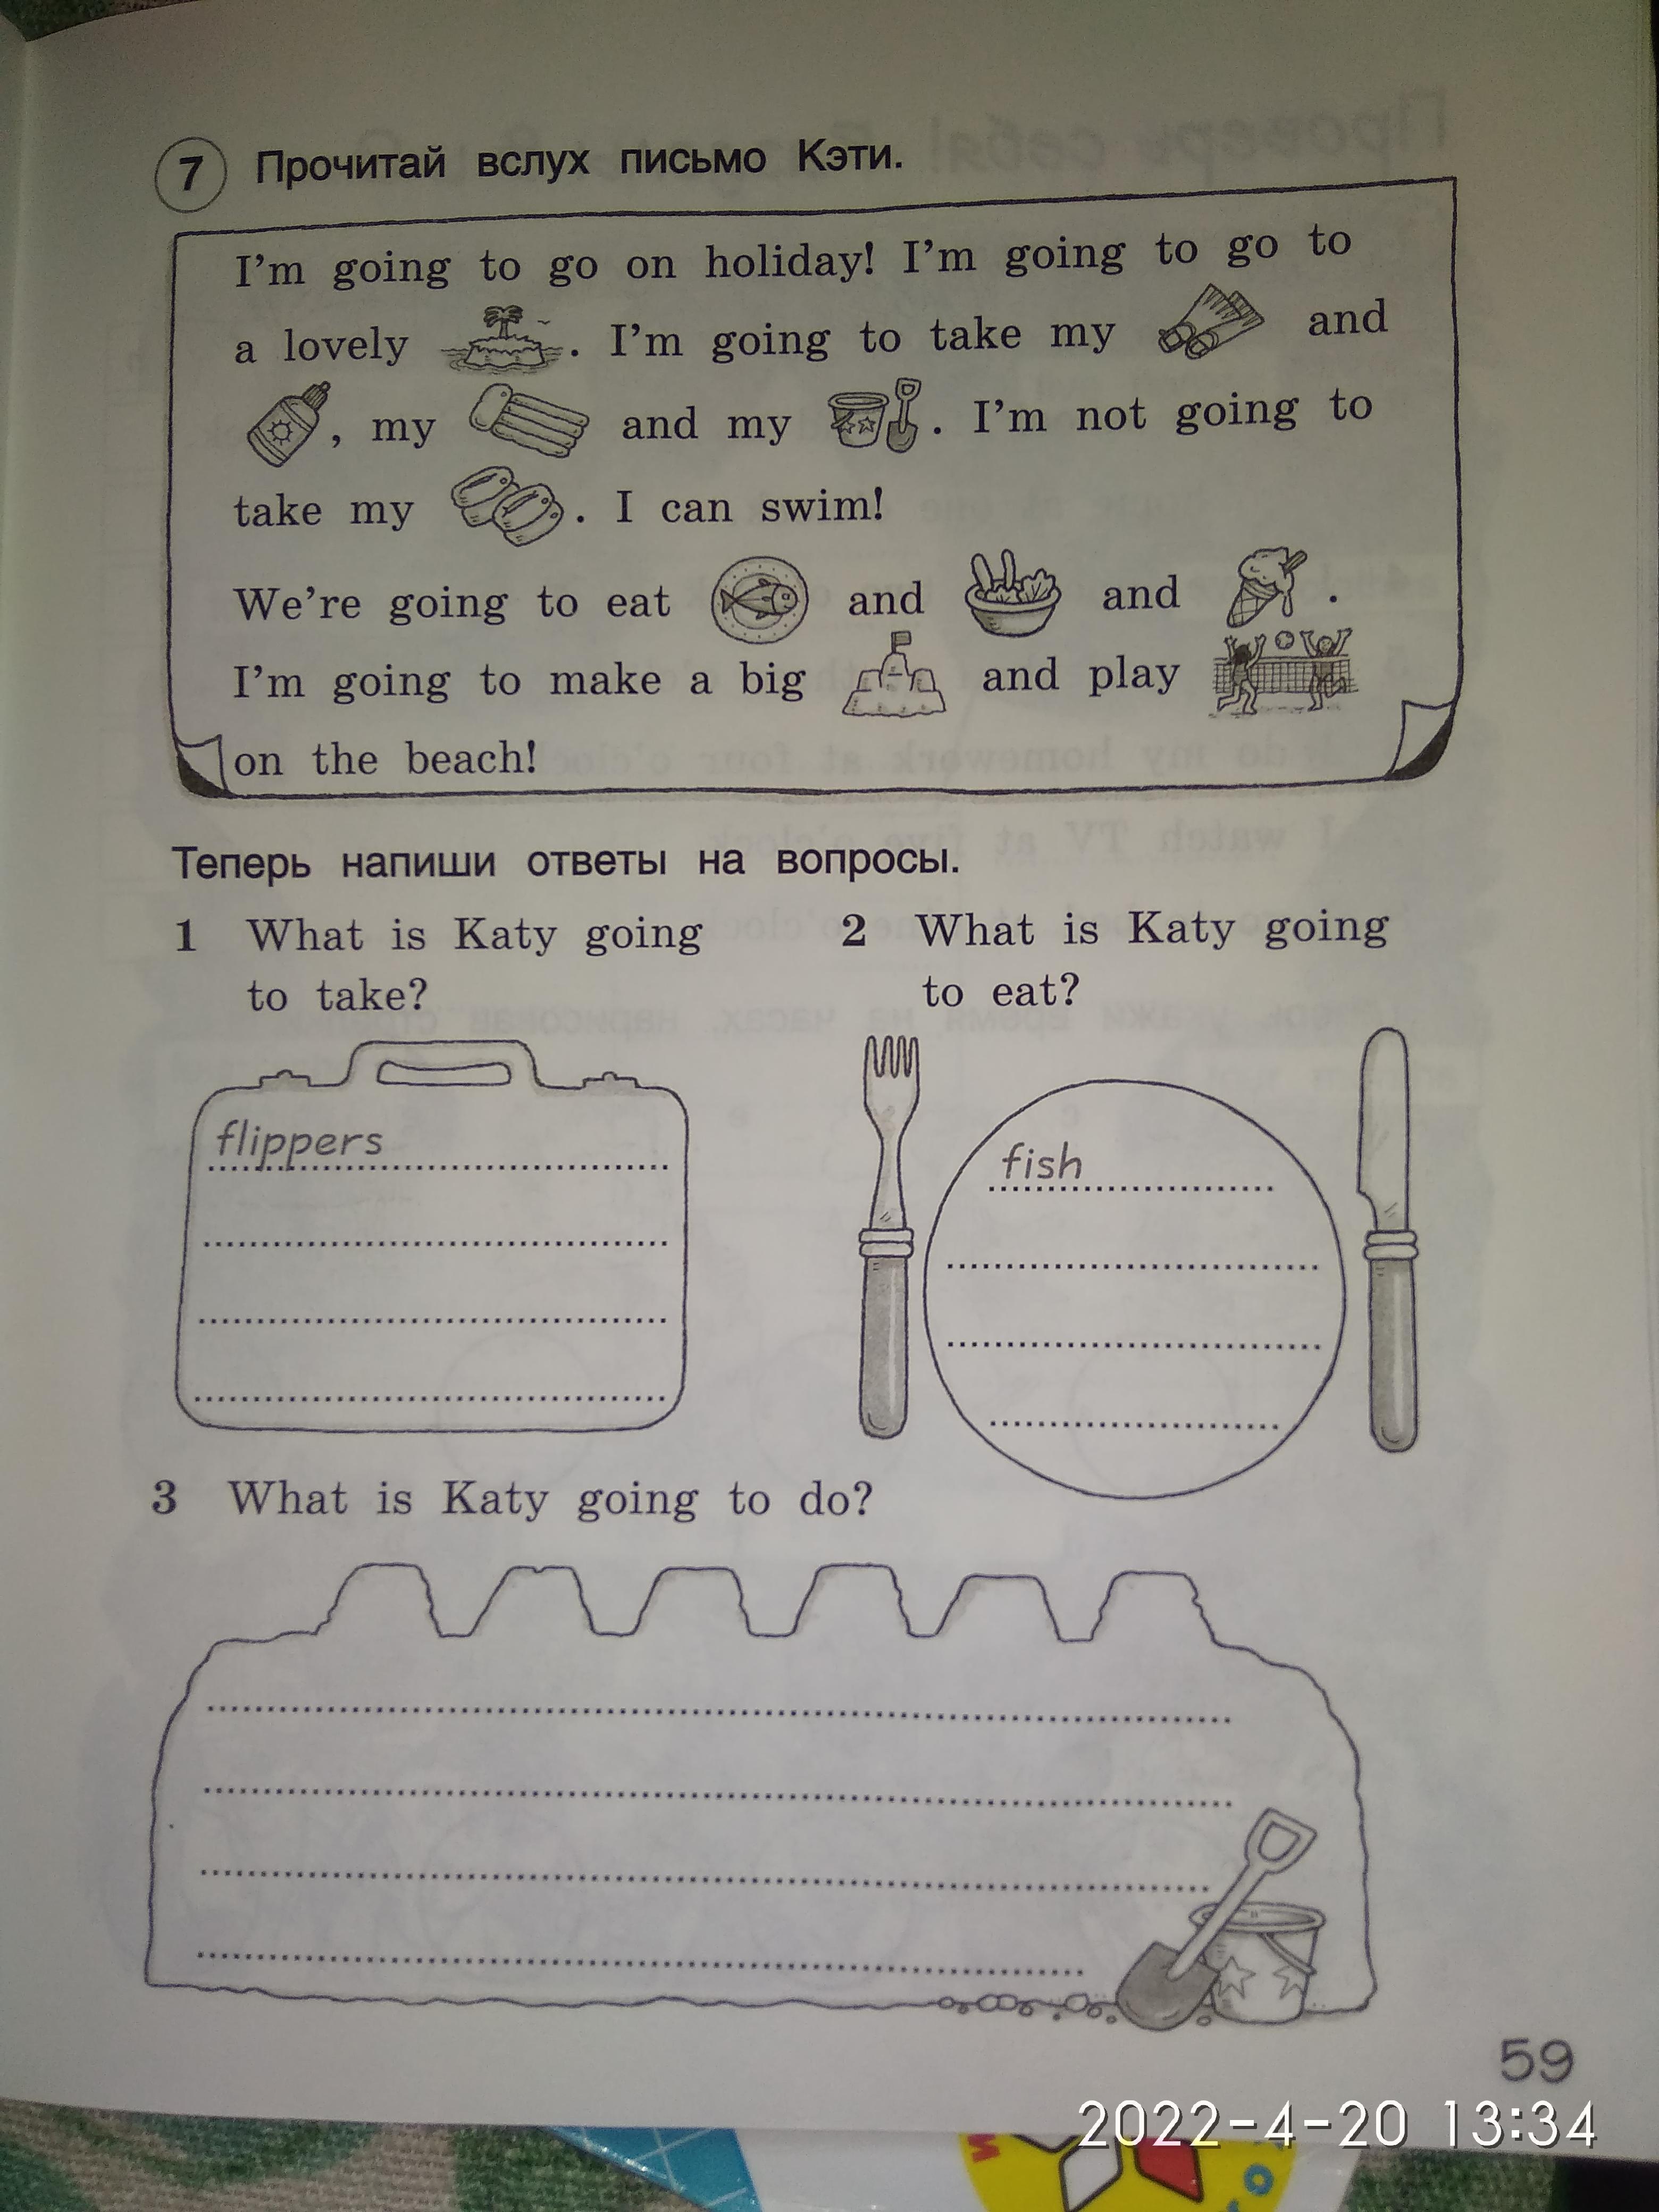 7 Прочитай вслух письмо Кэти.
I'm going to go on holiday! I'm going to go to
a lovely . I'm going to take my and
, my and my . I'm not going to
take my . I can swim!
We're going to eat and and .
I'm going to make a big and play
on the beach!
Теперь напиши ответы на вопросы.
1 What is Katy going
to take?
2 What is Katy going
to eat?
flippers
fish
3 What is Katy going to do?
59
2022-4-20 13:34